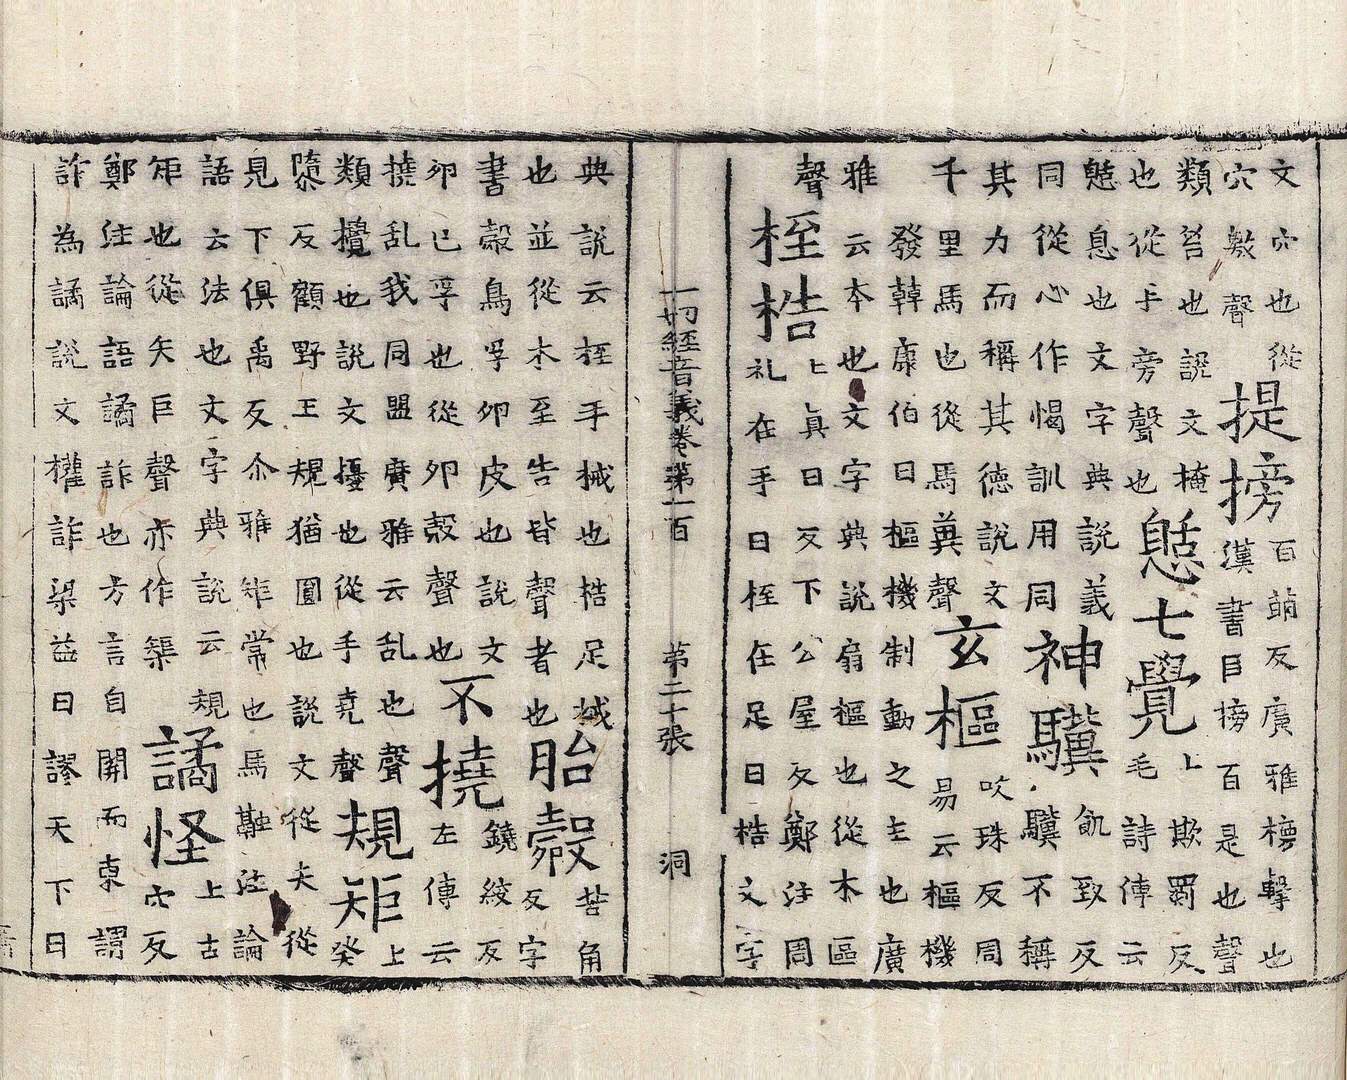 文穴也從穴敫聲提搒百萌反廣雅搒擊也漢書曰搒百是也聲
類笞也說文掩也從手旁聲也憩七覺上欺罽反毛詩傳云
憩息也文字典說義同從心作愒訓用同神驥飢致反驥不稱
其力而稱其德說文千里馬也從馬兾聲玄樞吹珠反周易云樞機
發韓康伯曰樞機制動之主也廣雅云本也文字典說扇樞也從木區
聲桎梏上真日反下公屋反鄭注周礼在手曰桎在足曰梏文字
一切經音義卷第一百　第二十張　洞
典說云桎手械也梏足械也並從木至告皆聲者也胎㲉苦角反字
書㲉鳥孚卵皮也說文卵已孚也從卵㱿聲也不撓鐃絞反左傳云
撓乱我同盟廣雅云乱也聲類攪也說文擾也從手堯聲規矩上癸
隨反顧野王規猶圓也說文從夫從見下俱禹反尒雅矩常也馬融注論
語云法也文字典說云規矩也從矢巨聲亦作榘譎怪上古穴反
鄭注論語譎詐也方言自關而東謂詐為譎說文權詐梁益曰謬天下曰